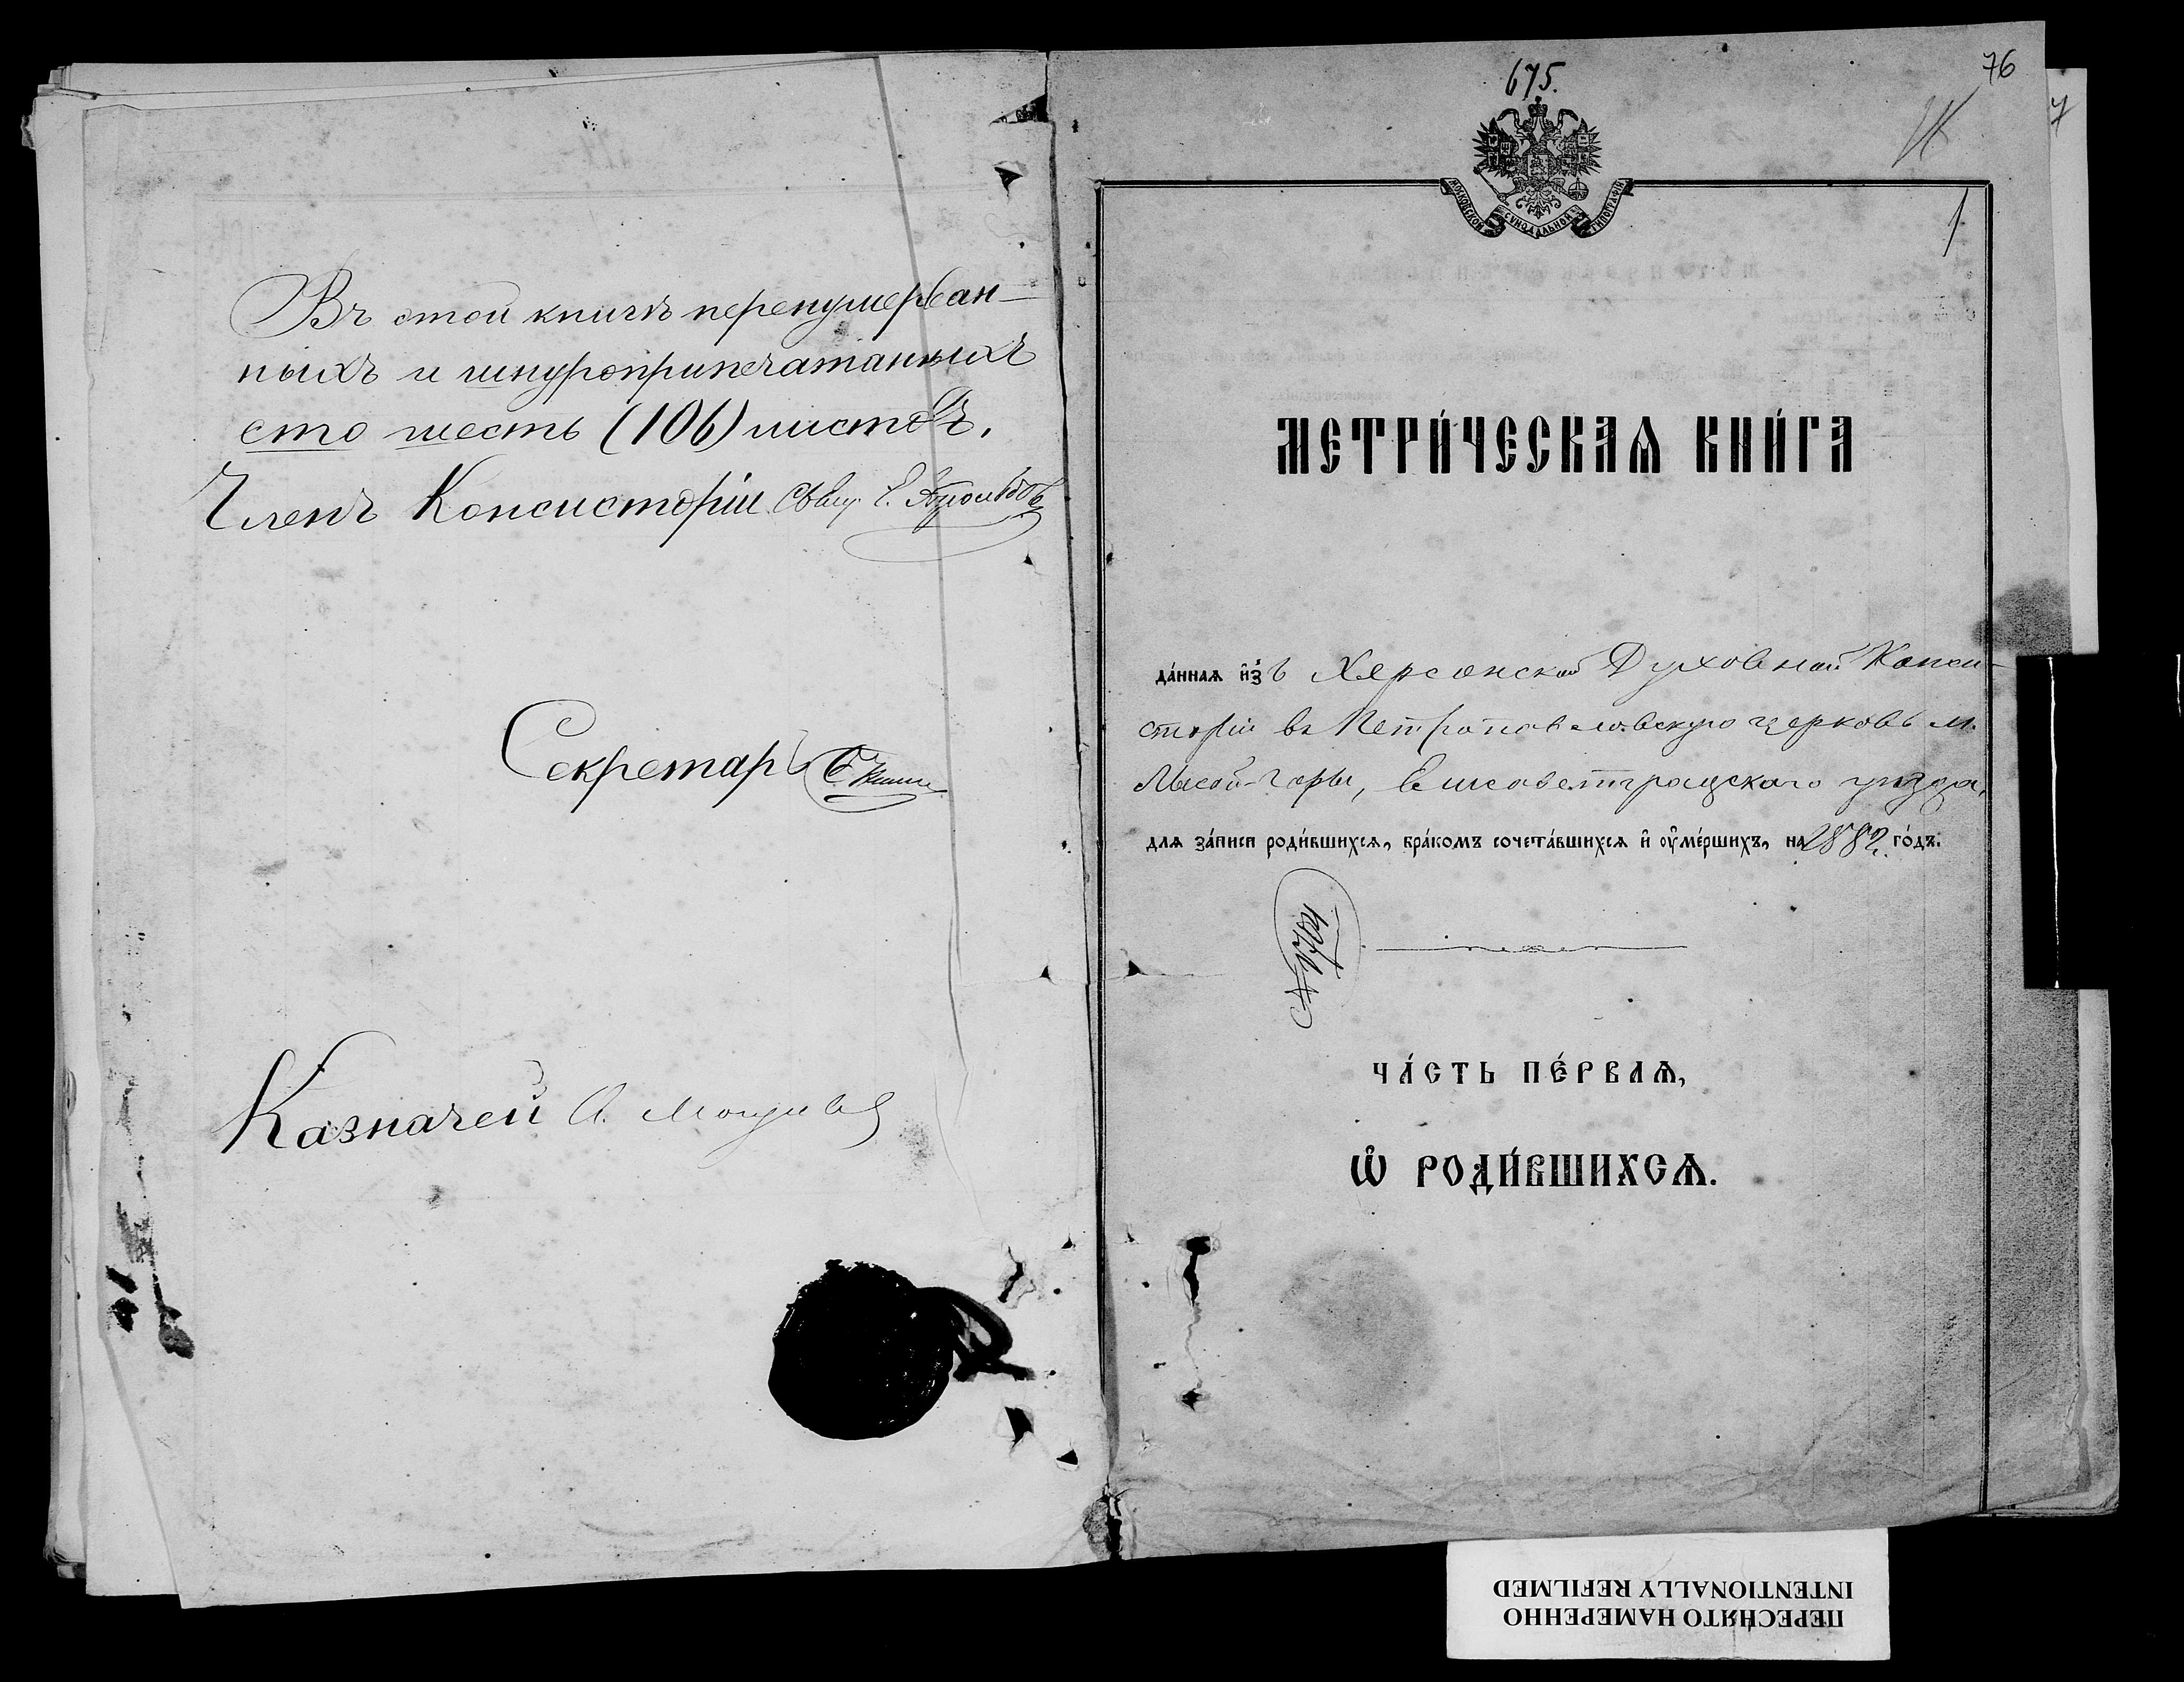 Въ этой книгѣ перенумерован-
ныхъ и шнуроприпечатанныхъ
сто шесть (106) листовъ.
Членъ Консисторіи Свящ.
Секретарь
Казначей
675.
76
1
МОСКОВСКОЙ СѴНОДАЛЬНОЙ ТИПОГРАФІИ
МЕТРИ́ЧЕСКАѦ КНИ́ГА
да́ннаѧ и҆зъ Херсонской Духовной Конси-
сторіи въ Петропавловскую церковь м.
Лысой-Горы, Елисаветградскаго уѣзда,
для за́писи роди́вшихсѧ, бра́комъ сочета́вшихсѧ и҆ ᲂу҆ме́ршихъ, на 1882 го́дъ.
ЧА́СТЬ ПЕ́РВАѦ,
Ѡ҆ РОДИ́ВШИХСѦ.
ПЕРЕСНЯТО НАМЕРЕННО
INTENTIONALLY REFILMED